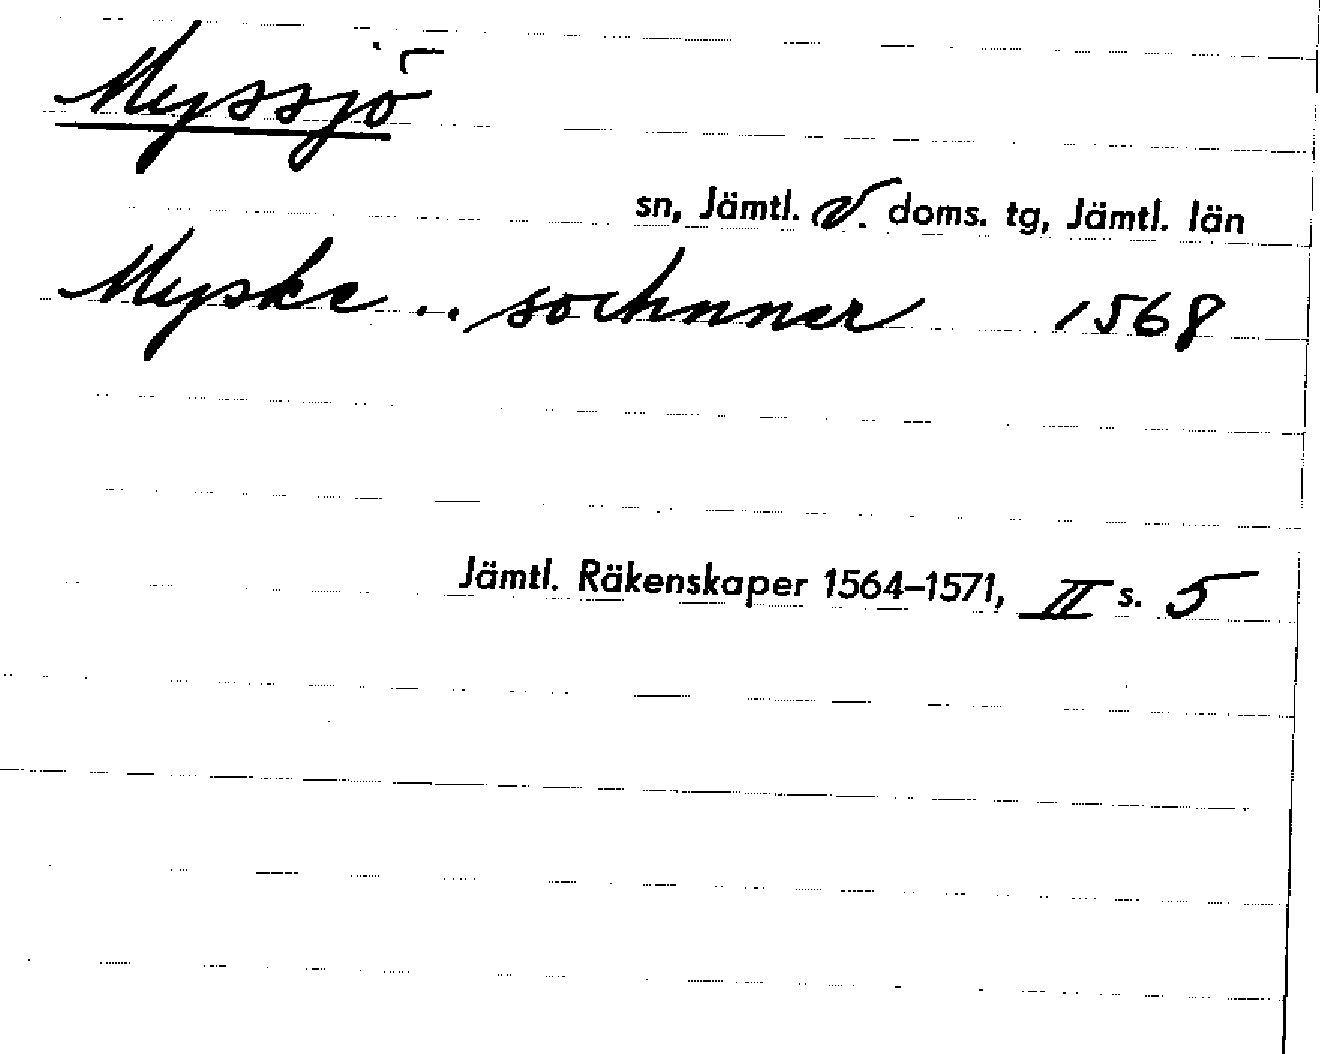 Myssjö
sn, Jämtl. V. doms. tg, Jämtl. län
Myske .. sochnner 1568
Jämtl. Räkenskaper 1564–1571, II s. 5